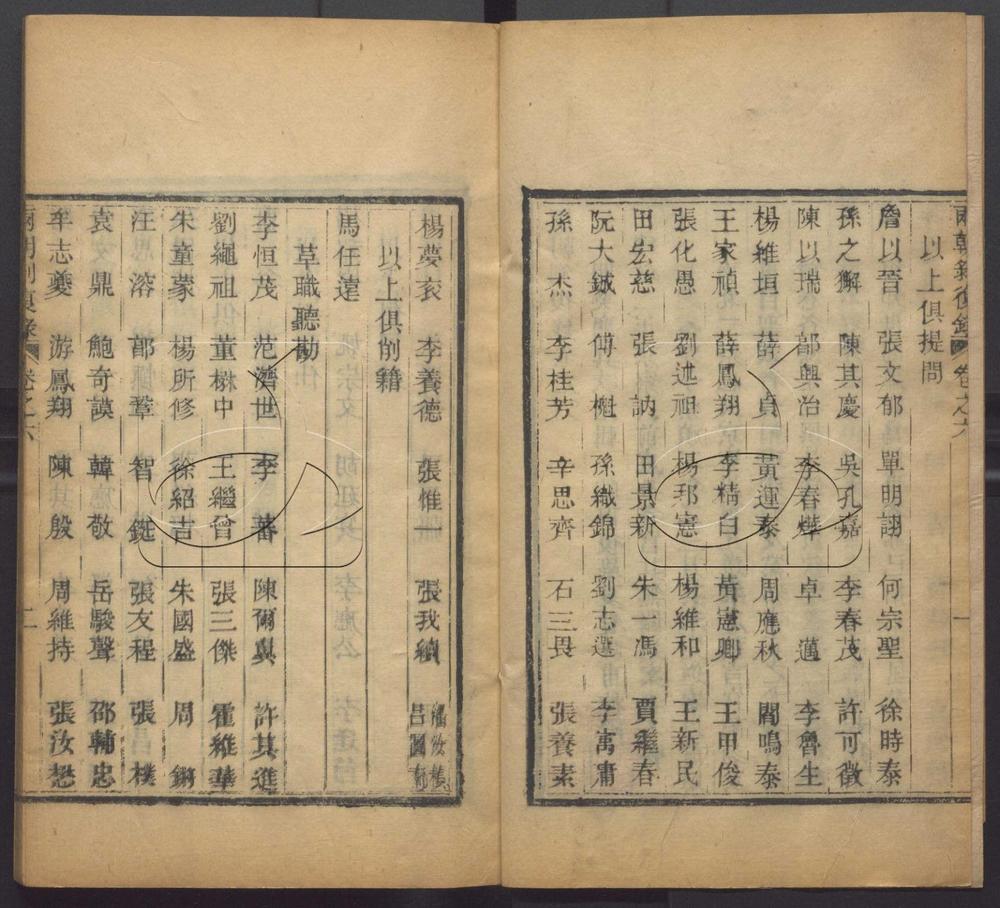 以上俱提問
詹以晉 張文郁 單明詡 何宗聖 徐時泰
孫之獬 陳其慶 吳孔嘉 李春茂 許可徵
陳以瑞 郭興治 李春燁 卓邁 李魯生
楊維垣 薛貞 黃運泰 周應秋 閻鳴泰
王家禎 薛鳳翔 李精白 黃憲卿 王甲俊
張化愚 劉述祖 楊邦憲 楊維和 王新民
田宏慈 張訥 田景新 朱一馮 賈繼春
阮大鋮 傅櫆 孫織錦 劉志選 李寓庸
孫杰 李桂芳 辛思齊 石三畏 張養素
楊夢袞 李養德 張惟一 張我續
以上俱削籍
馬任遠
草職聽勘
李恒茂 范濟世 李蕃 陳爾翼 許其進
劉繩祖 董懋中 王繼曾 張三傑 霍維華
朱童蒙 楊所修 徐紹吉 朱國盛 周鏘
汪溶 鄀羣 智鋌 張友程 張樸
袁鼎 鮑奇謨 韓敬 岳駿聲 邵輔忠
牟志夔 游鳳翔 陳殷 周維持 張汝懋
卷之六 二